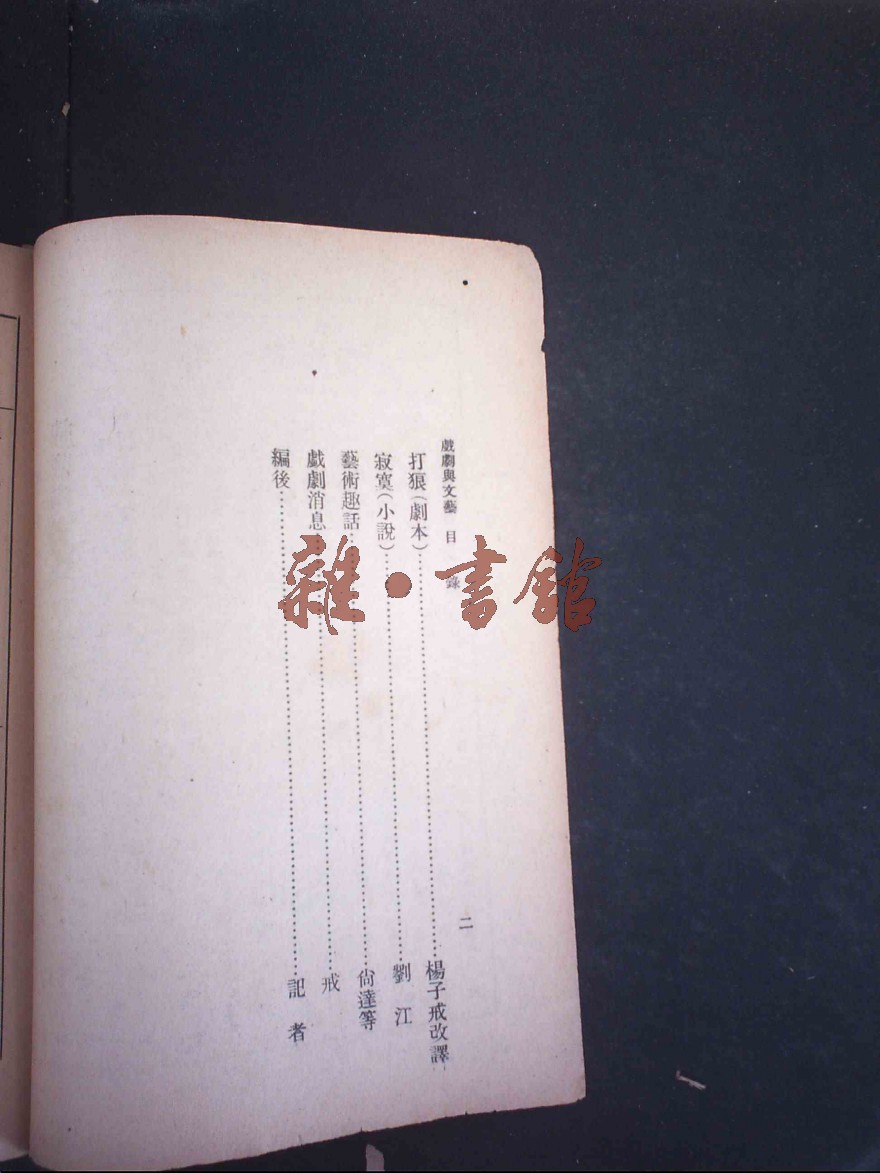 戲劇與文藝 目錄
二
打狼(劇本)……楊子戒改譯
寂寞(小說)……劉江
藝術趣話……尙達等
戲劇消息……戒
編後……記者
雜·書館